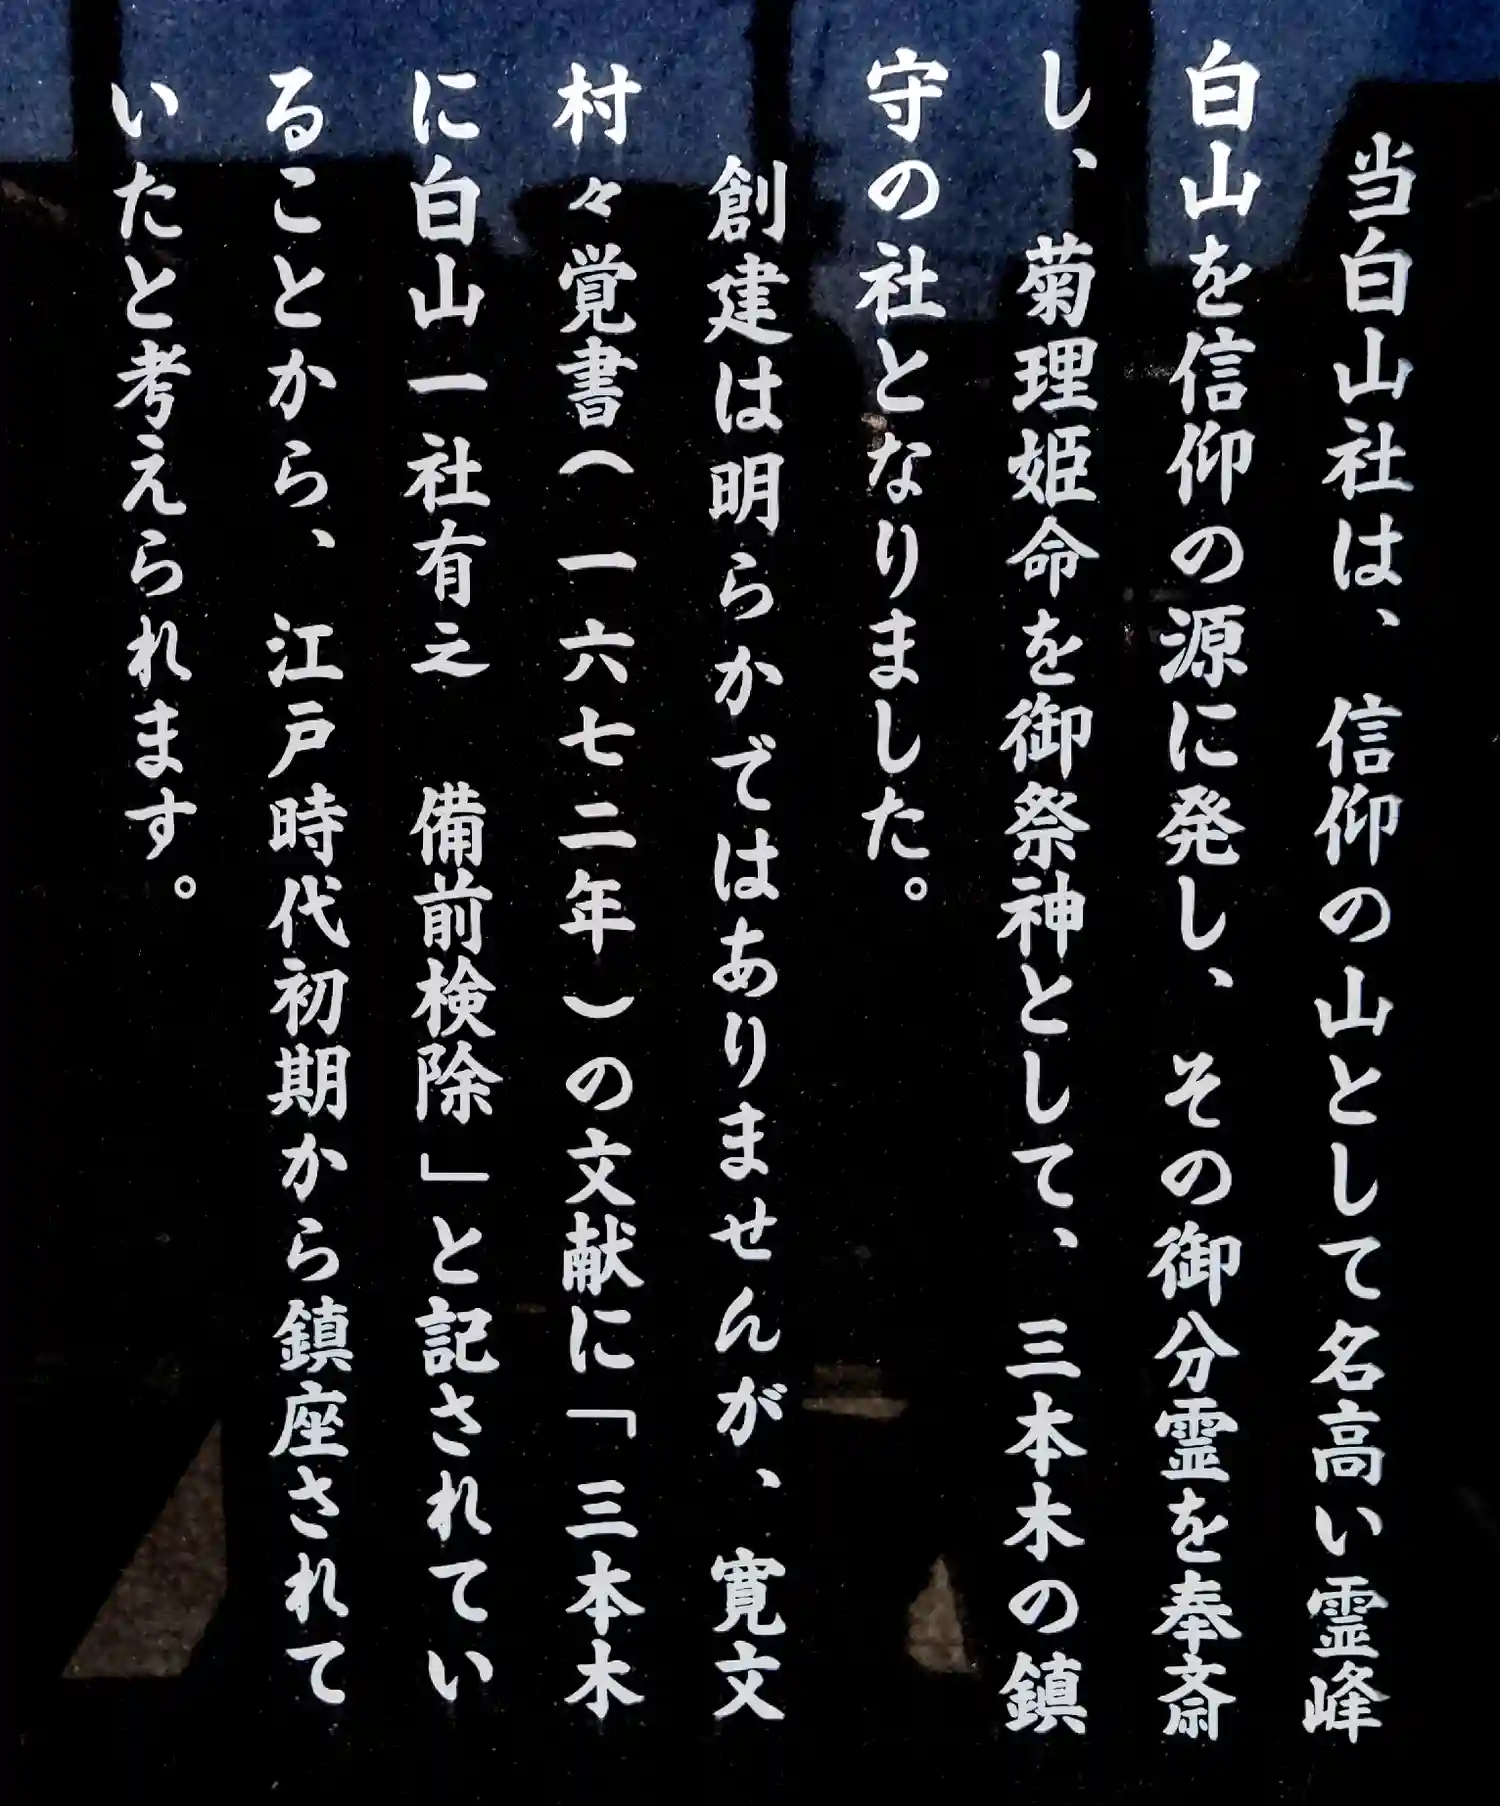 当白山社は、信仰の山として名高い霊峰
白山を信仰の源に発し、その御分霊を奉斎
し、菊理姫命を御祭神として、三本木の鎮
守の社となりました。
創建は明らかではありませんが、寛文
村々覚書(一六七二年)の文献に「三本木
に白山一社有之　備前検除」と記されてい
ることから、江戸時代初期から鎮座されて
いたと考えられます。